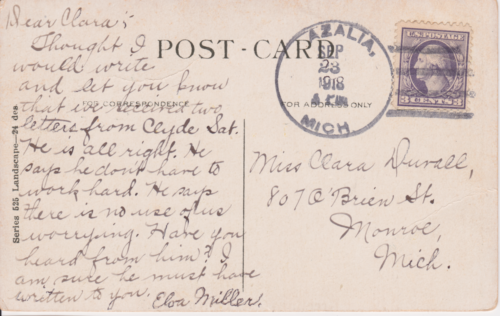 Dear Clara:
Thought I
would write
and let you know
that we received two
letters from Clyde Sat.
He is all right. He
says he dont have to
work hard. He says
there is no use of us
worrying. Have you
heard from him? I
am sure he must have
written to you.
Elva Miller.
POST-CARD
FOR CORRESPONDENCE
FOR ADDRESS ONLY
Series 525 Landscape—24 des
AZALIA,
SEP
23
1918
MICH
3 CENTS 3
Miss Clara Duvall,
807 O'Brien St.
Monroe,
Mich.